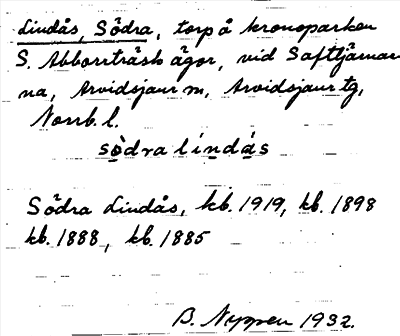 Lindås, Södra, torp å kronoparken
S. Abborrträsk ägor, vid Saftjärnar-
na, Arvidsjaur m, Arvidsjaur tg,
Norrb. l.
södra lindås
Södra Lindås, kb. 1919, kb. 1898
kb. 1888, kb. 1885
B. Nyppen 1932.